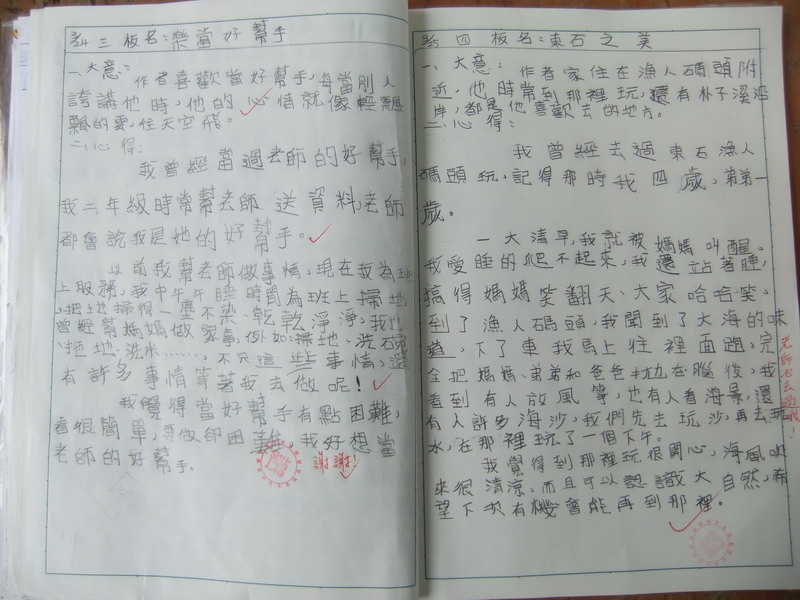 三 板名:樂當好幫手
一、大意:作者喜歡當好幫手,每當別人
誇講他時,他的心情就像輕飄
飄的雲,往天空飛。
二、心得:
我曾經當過老師的好幫手,
我三年級時常幫老師送資料,老師
都會說我是她的好幫手。
以前我幫老師做事情,現在我為班
上服務,我中午午睡時間為班上掃地,
把地掃得一塵不染、乾乾淨淨,我也
曾經幫媽媽做家事,例如:掃地、洗
拖地、洗米……,不只這些事情,還
有許多事情等著我去做呢!
我覺得當好幫手有點困難,
看很簡單,要做卻困難,我好想當
老師的好幫手。
謝謝!
四 板名:東石之美
一、大意:作者家住在漁人碼頭附
近,他時常到那裡玩,還有朴子溪沿
岸,都是他喜歡去的地方。
二、心得:
我曾經去過東石漁人
碼頭玩,記得那時我四歲,弟弟一
歲。
一大清早,我就被媽媽叫醒。
我愛睡的爬不起來,我還站著睡,
搞得媽媽笑翻天、大家哈哈笑,
到了漁人碼頭,我聞到了大海的味
道,下了車我馬上往裡面跑,完
全把媽媽、弟弟和爸爸拋在腦後,我
看到有人放風箏,也有人看海景,還
有人許多海沙,我們先去玩沙,再去玩
水,在那裡玩了一個下午。
我覺得到那裡玩很開心,海風吹
來很清涼,而且可以認識大自然,希
望下次有機會能再到那裡。
老師也去過哦!